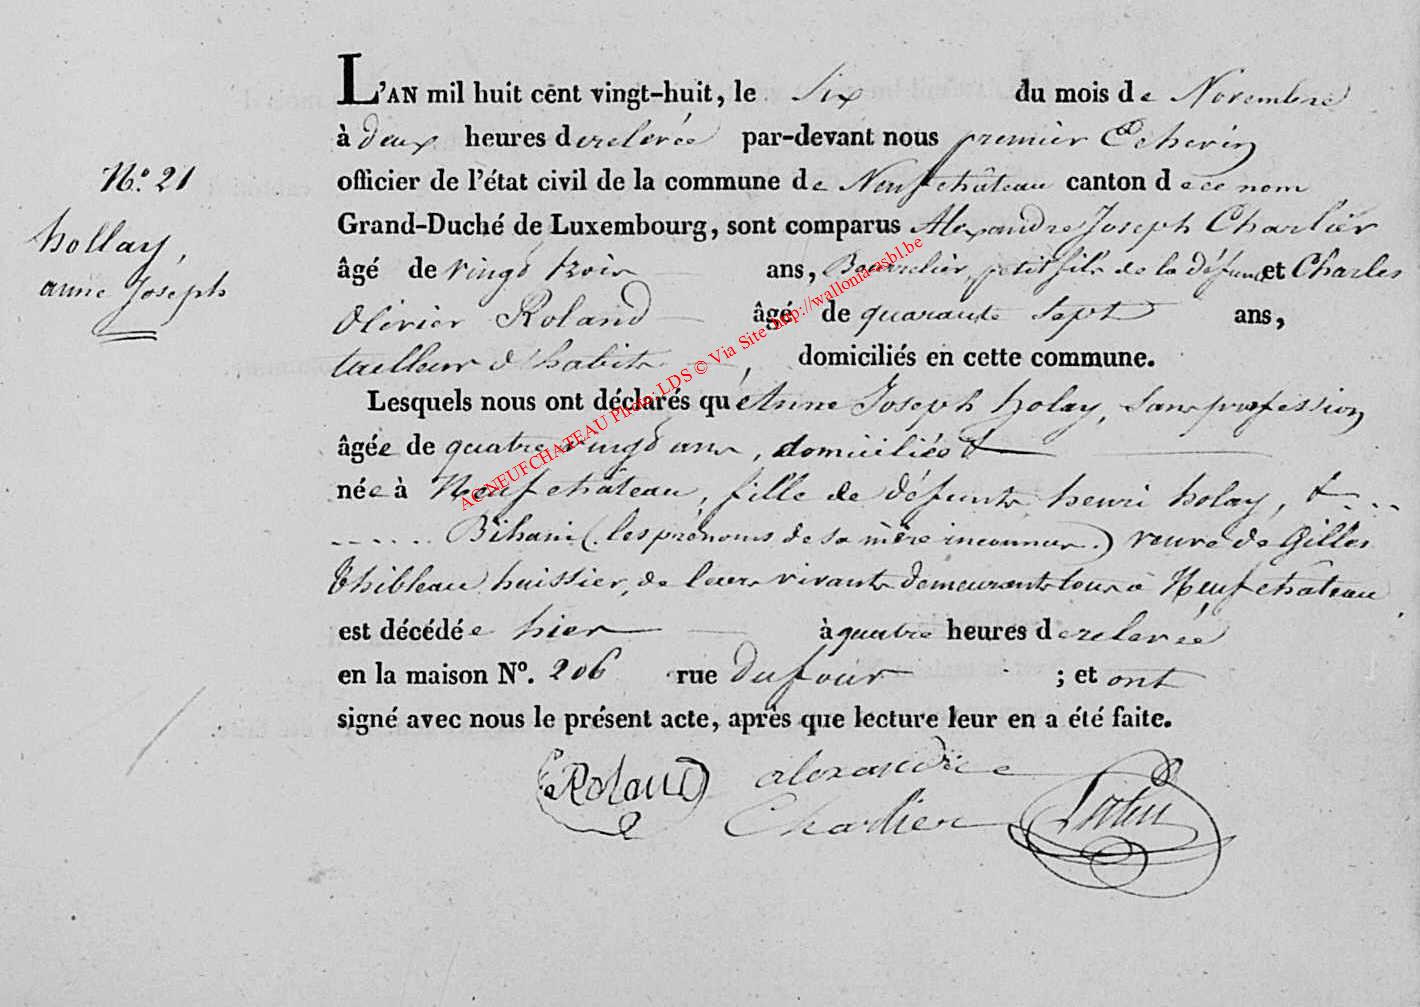 L'AN mil huit cent vingt-huit, le six du mois de Novembre
à deux heures de relevée par-devant nous premier Echevin
N.º 21
officier de l'état civil de la commune de Neufchâteau canton de ce nom
hollay,
anne Joseph
Grand-Duché de Luxembourg, sont comparus Alexandre Joseph Charlier
âgé de vingt trois ans, Bourrelier, petit fils de la défunte et Charles
Olivier Roland âgé de quarante sept ans,
tailleur d'habits, domiciliés en cette commune.
Lesquels nous ont déclarés que Anne Joseph holay, sans profession
âgée de quatre vingt ans, domiciliée &
née à Neufchâteau, fille de défunts henri holay, &
Bihain (les prénoms de sa mère inconnus.) veuve de Gilles
Thibleau huissier, de leurs vivants demeurants tous à Neufchâteau
est décédée hier à quatre heures de relevée
en la maison Nº. 206 rue du four ; et ont
signé avec nous le présent acte, après que lecture leur en a été faite.
Roland alexandre
Charlier
AC NEUFCHATEAU Photo: LDS © Via Site http://wallonia-asbl.be